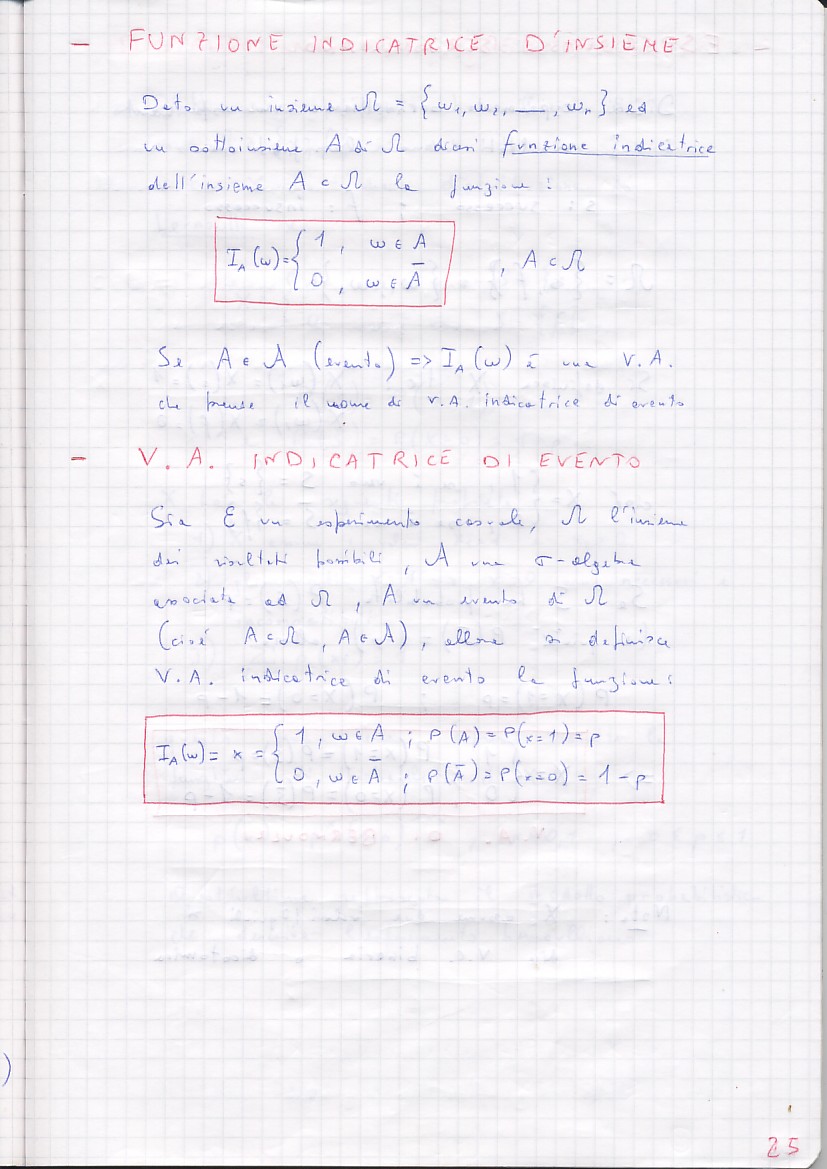 - FUNZIONE INDICATRICE D'INSIEME
Dato un insieme Ω = {ω₁, ω₂, —, ωₙ} ed
un sottoinsieme A di Ω dicesi funzione indicatrice
dell'insieme A ⊂ Ω la funzione:
I_A(ω) = { 1, ω ∈ A
0, ω ∈ Ā , A ⊂ Ω
Se A ∈ 𝒜 (evento) => I_A(ω) è una V.A.
che prende il nome di V.A. indicatrice di evento
- V.A. INDICATRICE DI EVENTO
Sia ℰ un esperimento casuale, Ω l'insieme
dei risultati possibili, 𝒜 una σ-algebra
associata ad Ω, A un evento di Ω
(cioé A ⊂ Ω, A ∈ 𝒜), allora si definisce
V.A. indicatrice di evento la funzione:
I_A(ω) = x = { 1, ω ∈ A ; P(A) = P(x=1) = p
0, ω ∈ Ā ; P(Ā) = P(x=0) = 1-p
)
25